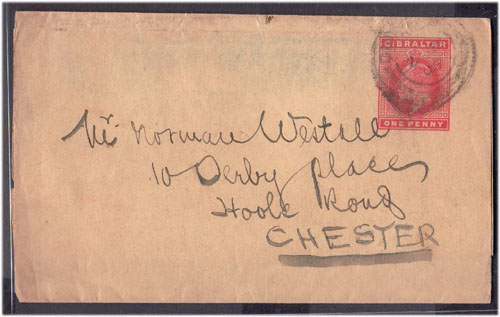 GIBRALTAR
ONE PENNY
Mr Norman Westall
10 Derby place
Hoole Road
CHESTER